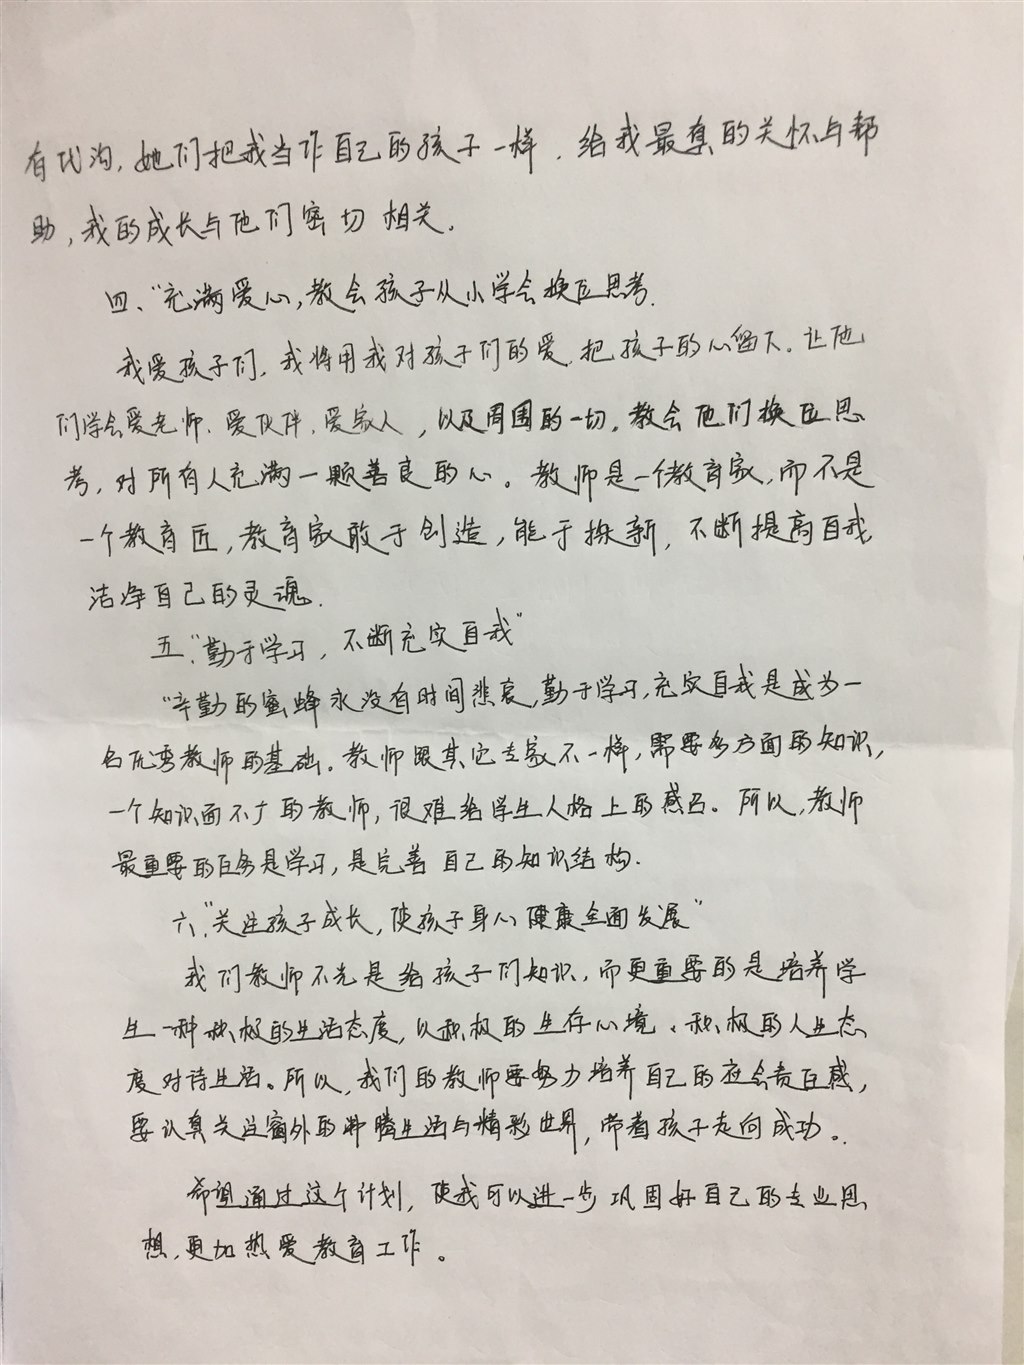 有代沟,她们把我当作自己的孩子一样,给我最真的关怀与帮
助,我的成长与他们密切相关。
四、“充满爱心,教会孩子从小学会换位思考.
我爱孩子们,我将用我对孩子们的爆,把孩子的心留下。让他
们学会爱老师、爱伙伴、爱家人,以及周围的一切。教会他们换位思
考,对所有人充满一颗善良的心。教师是一个教育家,而不是
一个教育匠,教育家敢于创造,能于换新,不断提高自我,
洁净自己的灵魂.
五、“勤于学习,不断充实自我”
“辛勤的蜜蜂永没有时间悲哀,勤于学习,充实自我是成为一
名优秀教师的基础。教师跟其它专家不一样,需要多方面的知识,
一个知识面不广的教师,很难给学生人格上的感召。所以,教师
最重要的任务是学习,是完善自己的知识结构.
六、“关注孩子成长,使孩子身心健康全面发展”
我们教师不光是给孩子们知识,而更重要的是培养学
生一种积极的生活态度,以积极的生存心境、积极的人生态
度对待生活。所以,我们的教师要努力培养自己的社会责任感,
要认真关注窗外的沸腾生活与精彩世界,带着孩子走向成功。
希望通过这个计划,使我可以进一步巩固好自己的专业思
想,更加热爱教育工作。